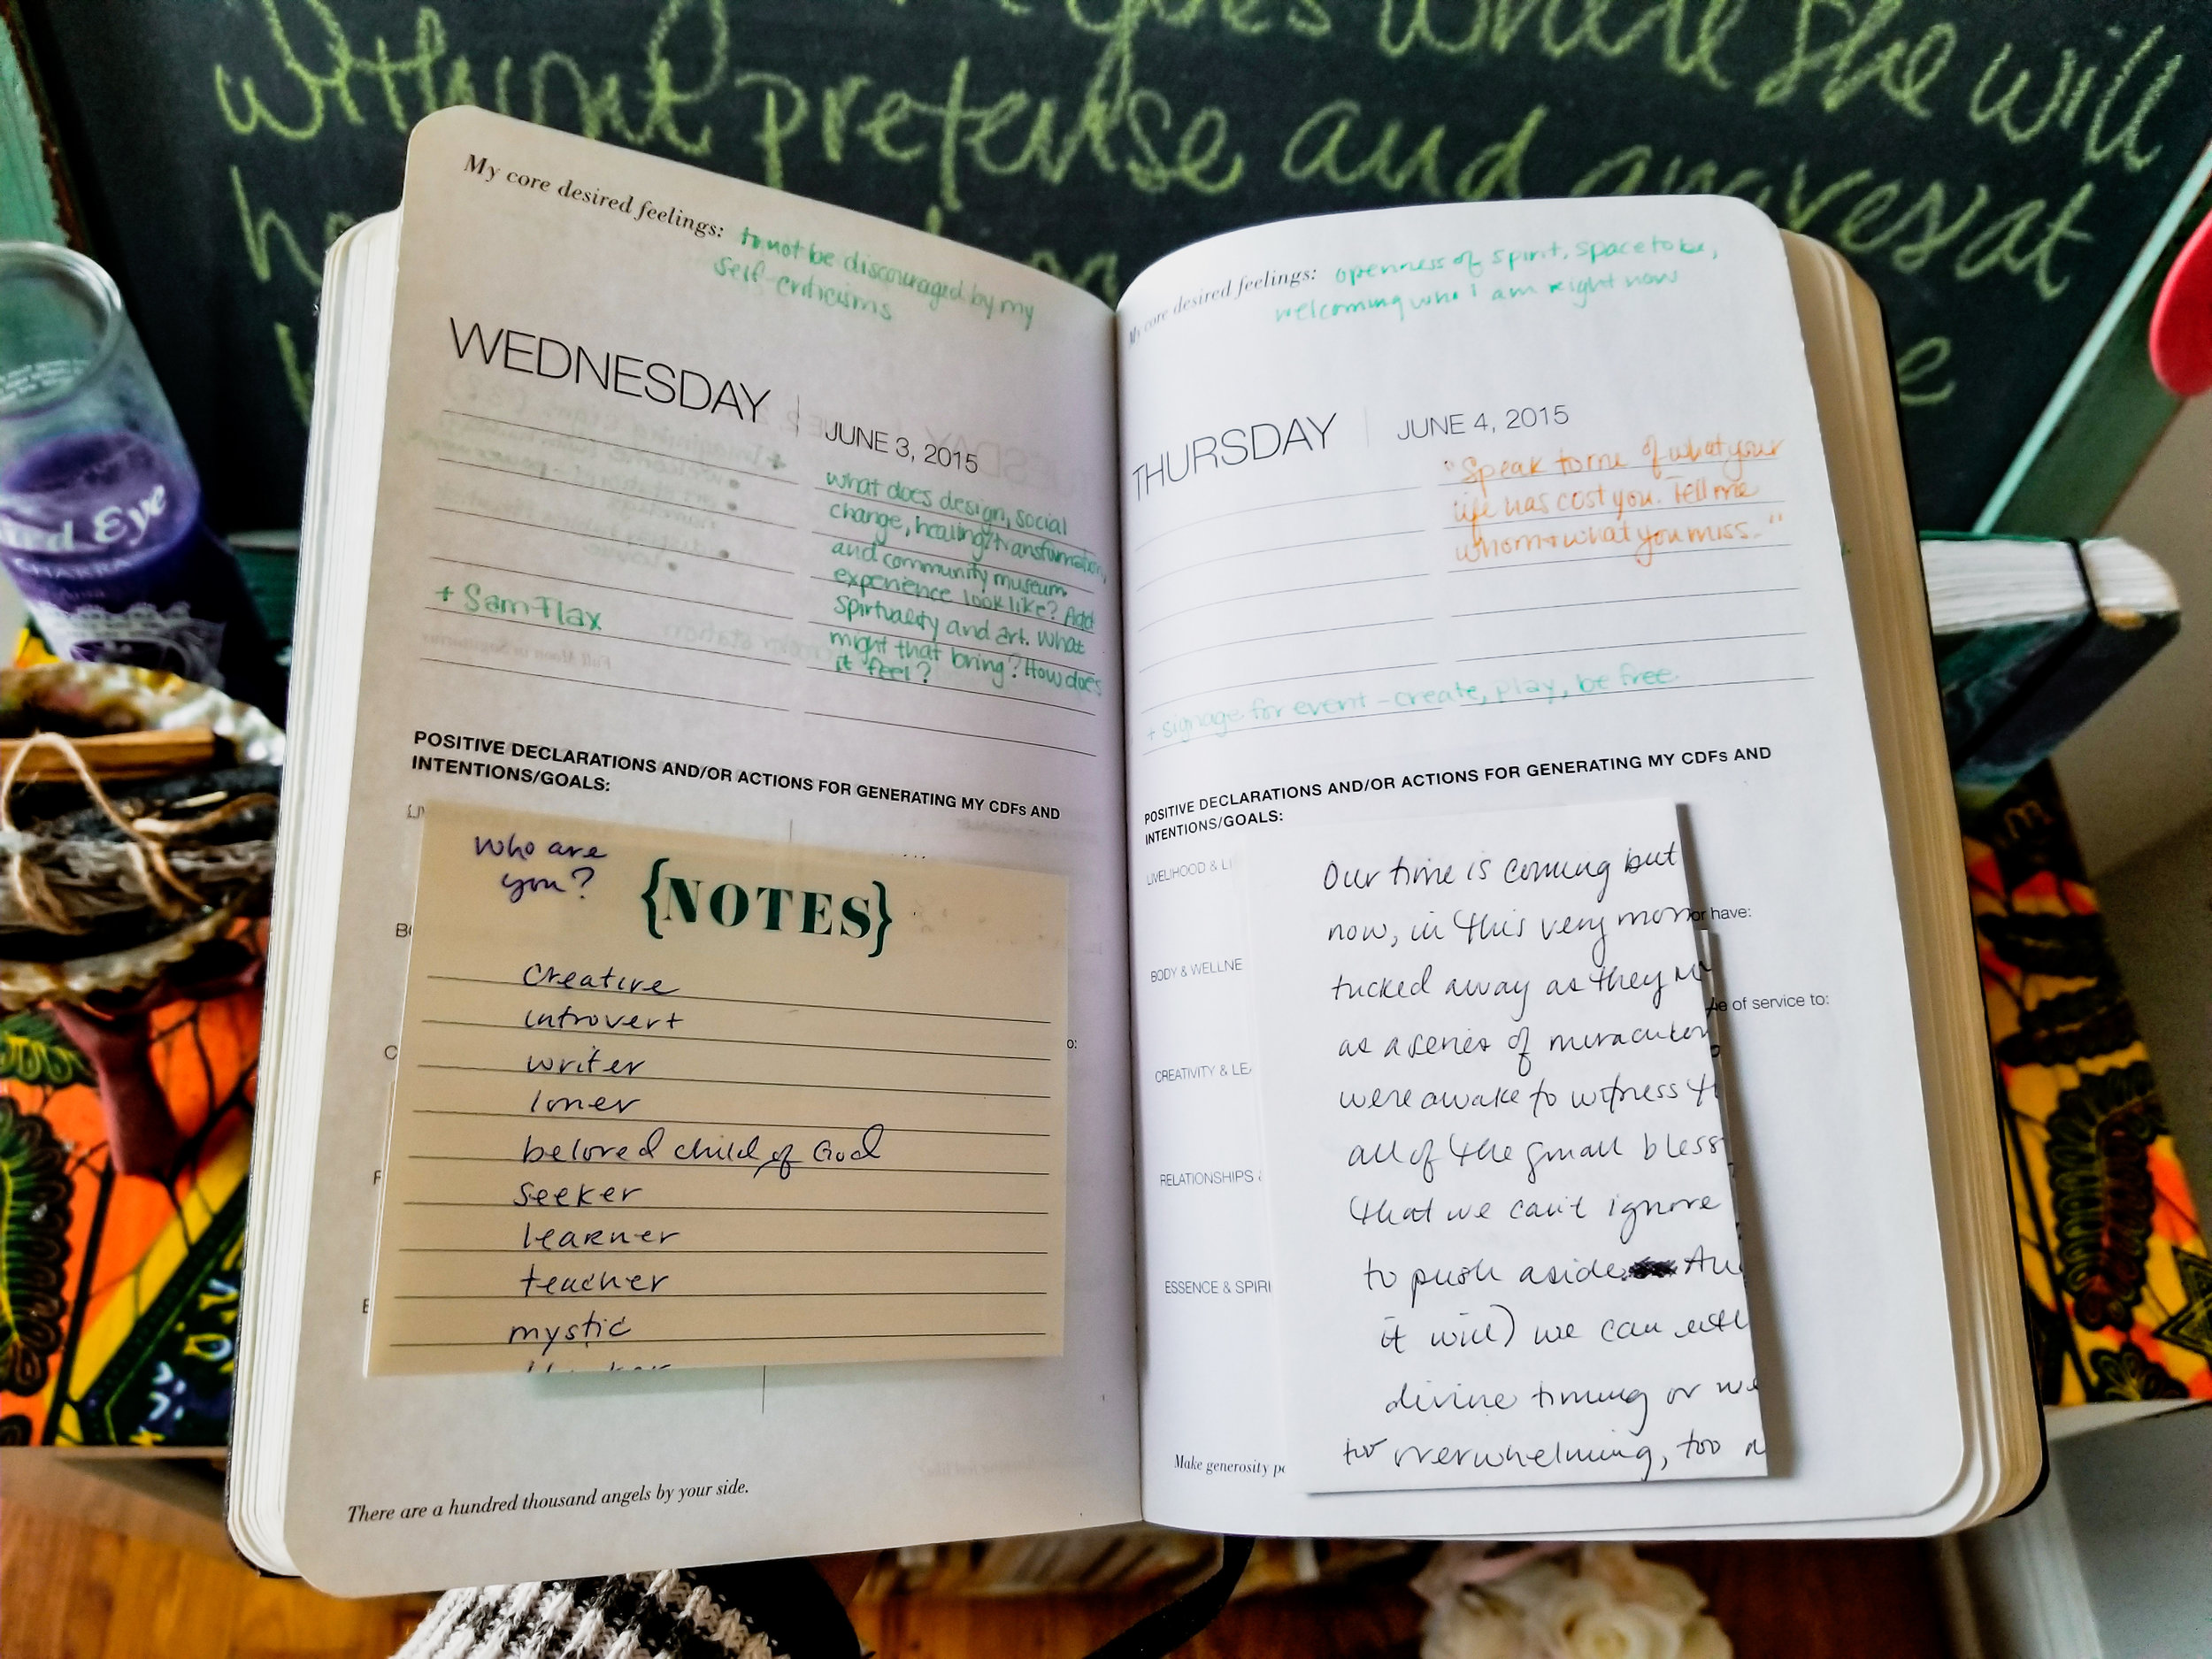 goes where she will
without pretense and
My core desired feelings: to not be discouraged by my
self-criticisms
WEDNESDAY | JUNE 3, 2015
what does design, social
change, healing/transformation,
and community museum
experience look like? Add
spirituality and art. What
might that bring? How does
it feel?
+ Sam Flax
POSITIVE DECLARATIONS AND/OR ACTIONS FOR GENERATING MY CDFs AND
INTENTIONS/GOALS:
who are
you?
{NOTES}
creative
introvert
writer
loner
beloved child of God
seeker
learner
teacher
mystic
There are a hundred thousand angels by your side.
My core desired feelings: openness of spirit, space to be,
welcoming who I am right now
THURSDAY | JUNE 4, 2015
"Speak to me of what your
life has cost you. Tell me
whom + what you miss."
+ signage for event - create, play, be free.
POSITIVE DECLARATIONS AND/OR ACTIONS FOR GENERATING MY CDFs AND
INTENTIONS/GOALS:
LIVELIHOOD & LI
or have:
BODY & WELLNE
of service to:
CREATIVITY & LE
RELATIONSHIPS
ESSENCE & SPIRI
Our time is coming but
now, in this very mom
tucked away as they
as a series of
were awake to witness
all of the small bless
that we can't ignore
to push aside.
it will) we can
divine timing or we
too overwhelming, too
Make generosity
Eye
CHAKRA